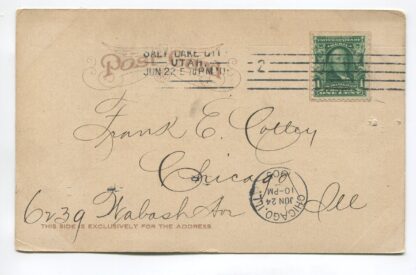 SALT LAKE CITY
UTAH.
JUN 22 5-PM
2
Post Card
Frank E. Colley
Chicago
6239 Wabash Av Ill
CHICAGO, ILL.
JUN 24
10-PM
1905
THIS SIDE IS EXCLUSIVELY FOR THE ADDRESS.